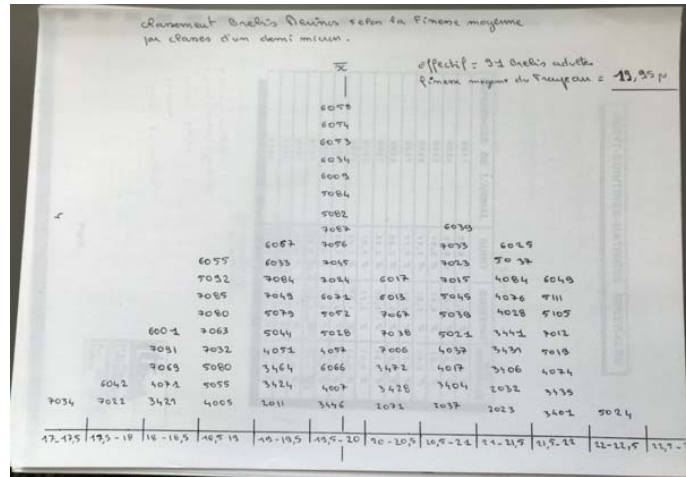 classement Brebis Mérinos selon la Finesse moyenne
par classes d'un demi micron.
x̄ effectif = 91 Brebis adultes
finesse moyenne du Troupeau = 19,95 µ
6058
6054
6053
6034
6009
5084
5082
7087 6039
6067 7056 7033 6025
6055 6033 7045 7023 5037
5092 7084 7024 6017 7015 4084 6049
7085 7049 6071 6013 5045 4076 5111
7080 5079 5052 7067 5039 4028 5105
6001 7063 5044 5028 7038 5021 3441 7012
7091 7032 4051 4057 7006 4037 3431 5019
7069 5080 3464 6066 3472 4017 3406 4074
6042 4071 5055 3424 4007 3428 3404 2032 3439
7034 7022 3421 4005 2011 3446 2071 2037 2023 3401 5024
17-17,5 17,5-18 18-18,5 18,5 19 19-19,5 19,5-20 20-20,5 20,5-21 21-21,5 21,5-22 22-22,5 22,5-